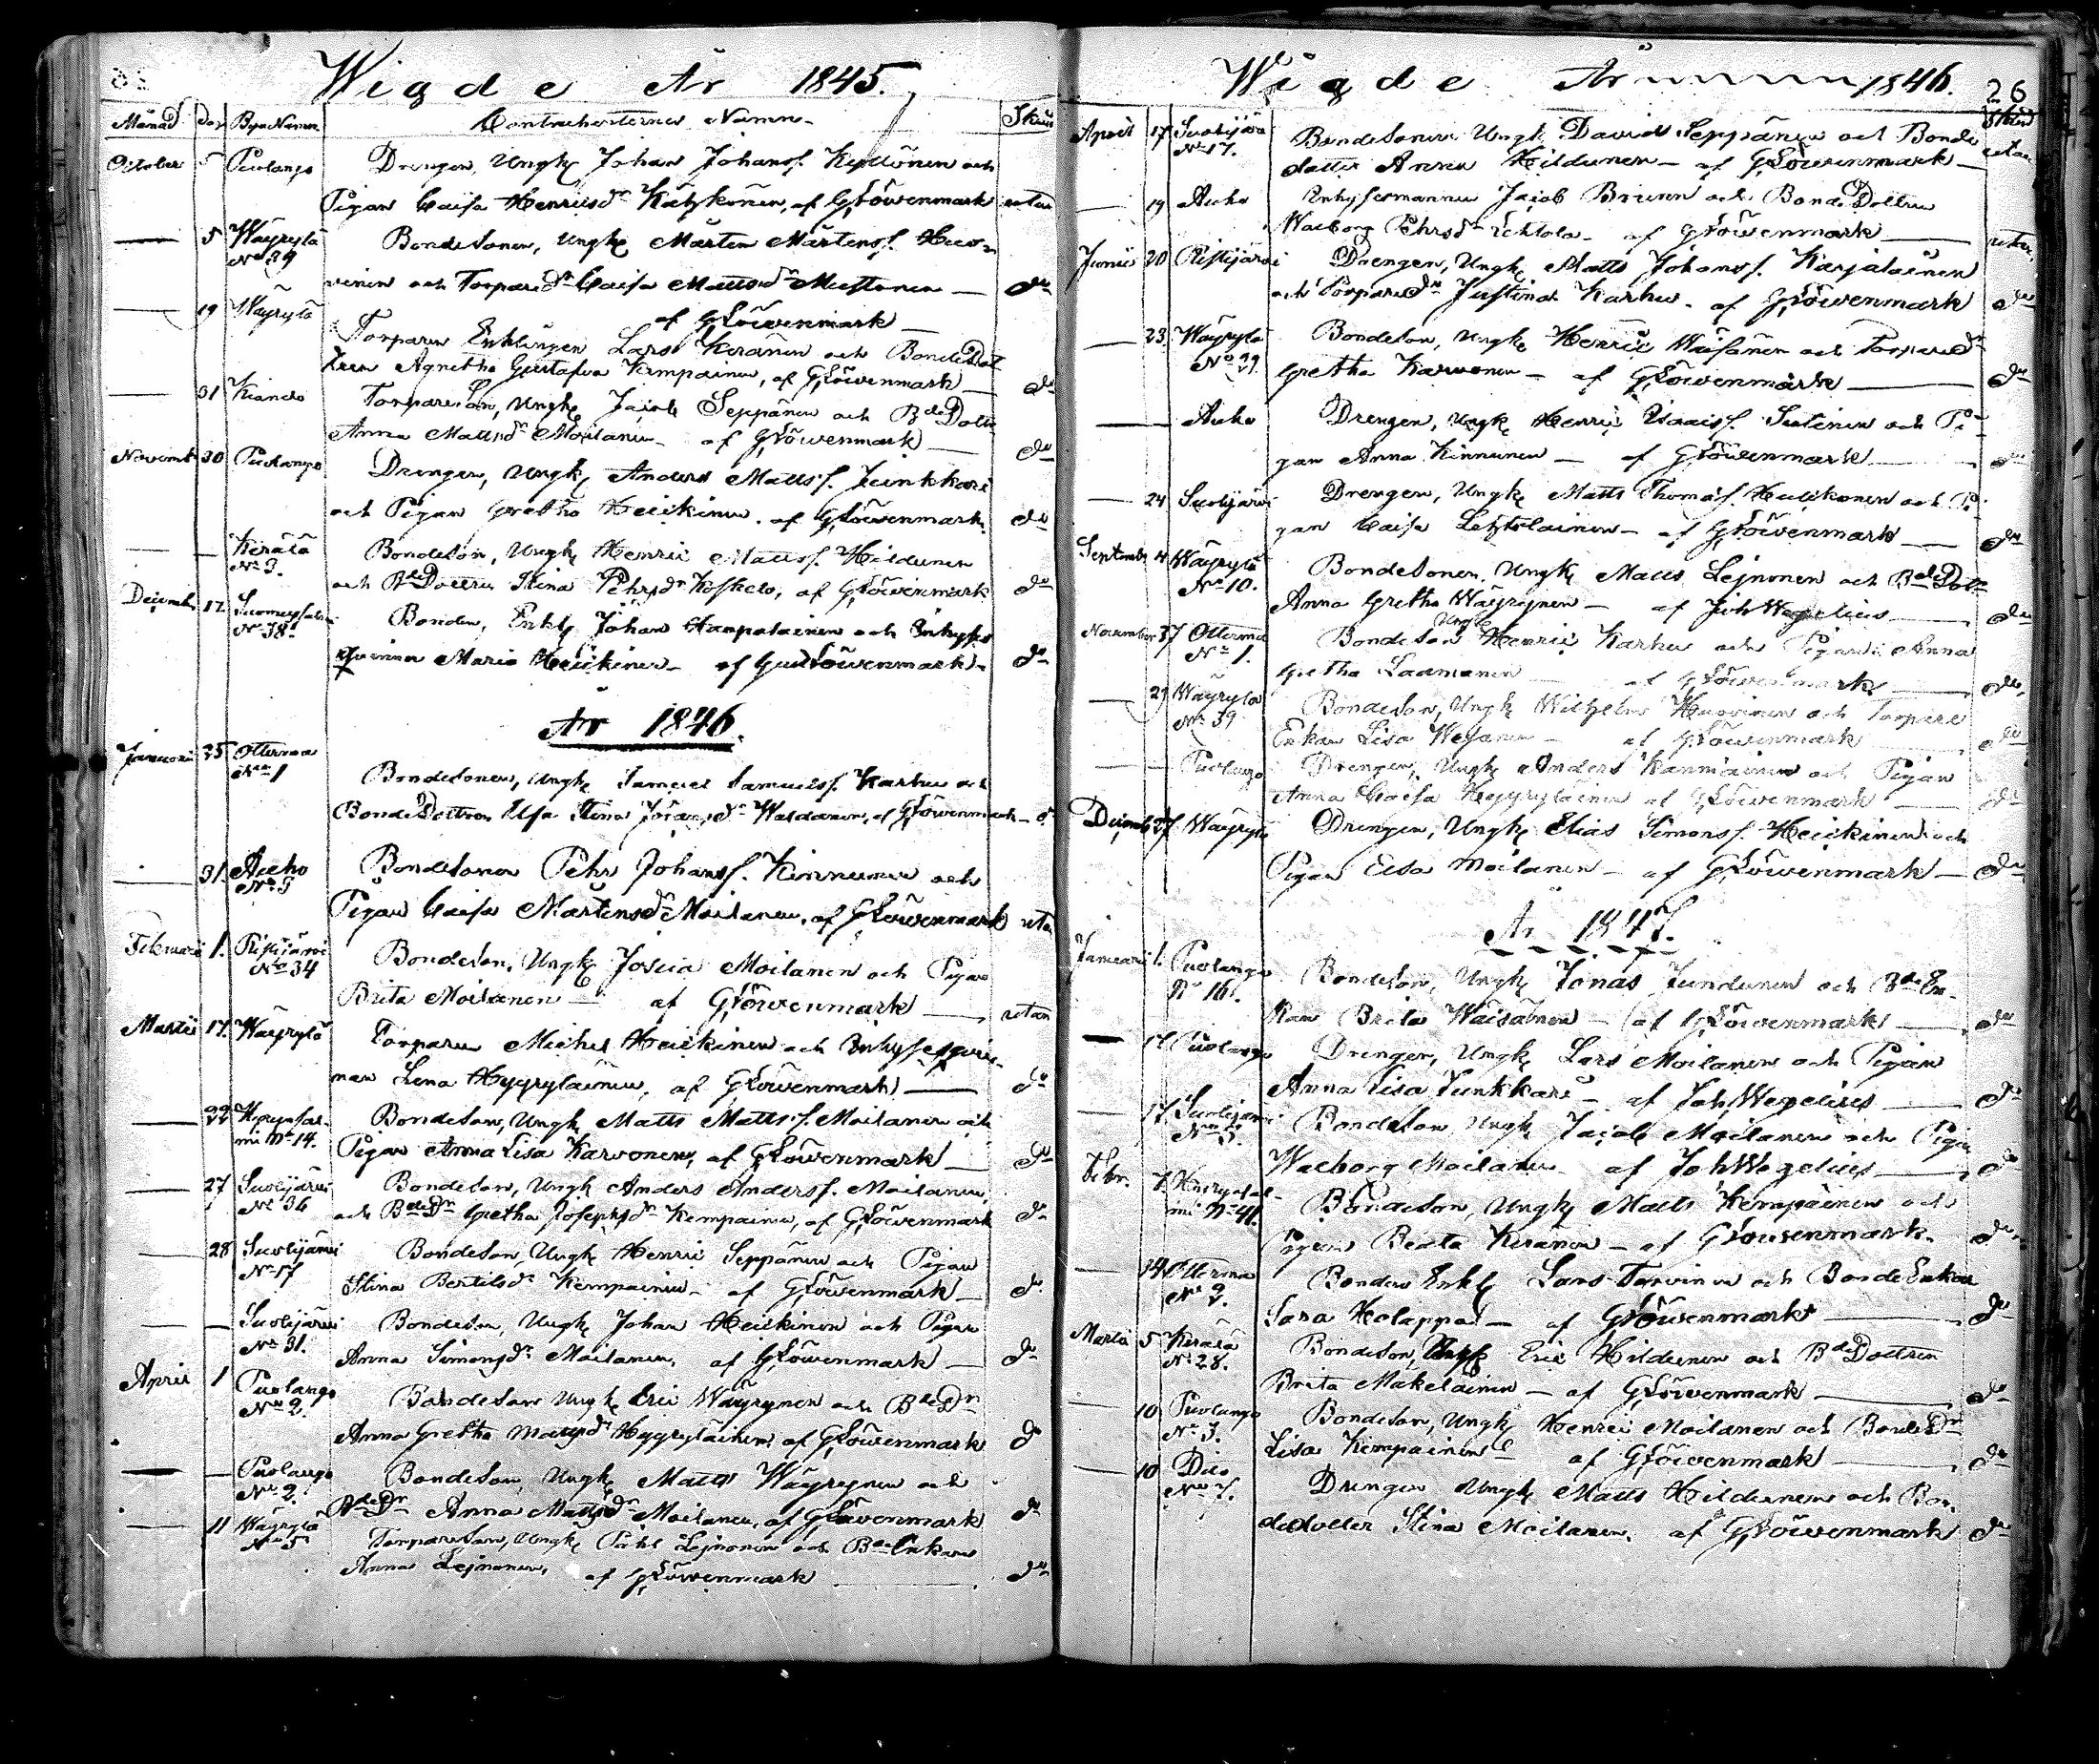 Wigde År 1845.
Månad Dag Byar Namn Contrahenternes Namn Skuld
October 5 Puolango Drengen, Ungk Johan Johanss. Kyllönen och
Pigan Caisa Henricsdr Kätzkönen, af GLöwenmark utan
5 Wäyrylä No 39 Bondesonen, Ungk Mårten Mårtenss. Huo-
vinen och Torparedr Caisa Mattsdr Mustonen do
af GLöwenmark
19 Wäyrylä Torparen Enklingen Lars Keränen och BondeDot
tren Agnetha Gustafva Kempainen, af GLöwenmark do
31 Kiando Torpareson, Ungk Jacob Seppänen och BdeDottr
Anna Mattsdr Moilanen af GLöwenmark do
Novemb 30 Puolango Drengen, Ungk Anders Mattss. Junkkari
och Pigan Gretha Heickinen af GLöwenmark do
Kerälä No 3. Bondeson, Ungk Henric Mattss. Hildunen
och BdeDottren Stina Pehrsdr Koskelo, af GLöwenmark do
Decemb 17 No 38. Bonden, Enkl Johan Karpalainen och Inhyses
qvinnan Maria Heickinen af GustLöwenmark do
År 1846.
Januarii 25 Otterma No 1 Bondesonen, Ungk Samuel Samuelss. Karhu och
BondeDottren Ulsa Stina Waldanen, af GLöwenmark do
31 Aucho No 5 Bondesonen Pehr Johanss. Kinnunen och
Pigan Caisa Mårtensdr Moilanen, af GLöwenmark utan
Februarii 1. Ristijärvi No 34 Bondeson, Ungk Josua Moilanen och Pigan
Brita Moilanen af GLöwenmark utan
Martii 17. Wäyrylä Torparen Michel Heickinen och Inhysesqvin-
nan Lena Hyyryläinen, af GLöwenmark do
22 Hyrynsal-
mi No 14. Bondeson, Ungk Matts Mattss. Moilanen och
Pigan Anna Lisa Karvonen, af GLöwenmark do
27 Suolijärvi No 36 Bondeson, Ungk Anders Anderss. Moilanen
och BdeDr Gretha Josephsdr Kempainen, af GLöwenmark do
28 Suolijärvi No 17 Bondeson, Ungk Henric Seppänen och Pigan
Stina Bertilsdr Kempainen af GLöwenmark do
Suolijärvi No 31. Bondeson, Ungk Johan Heickinen och Pigan
Anna Simonsdr Moilanen, af GLöwenmark do
April 1 Puolango No 2. Bondeson Ungk Eric Wäyrynen och BdeDr
Anna Gretha Mattsdr Hyyryläinen af GLöwenmark do
Puolango No 2. Bondeson, Ungk Matts Wäyrynen och
BdeDr Anna Mattsdr Moilanen, af GLöwenmark do
11 Wäyrylä No 5 Torpareson, Ungk Påhl Lejnonen och BdeEnkan
Anna Lejnonen, af GLöwenmark do
Wigde År 1846. 26
Skuld
April 17 Suolijärvi No 17. Bondesonen Ungk David Seppänen och Bonde
dotter Anna Hildunen af GLöwenmark utan
19 Aucho Inhysesmannen Jacob Brunn och BondeDottren
Walborg Pehrsdr Lehtola af GLöwenmark utan
Junii 20 Ristijärvi Drengen, Ungk Matts Johanss. Karjalainen
och Torparedr Justina Karhu af GLöwenmark do
23. Wäyrylä No 29. Bondeson, Ungk Henric Wäisänen och Torparedr
Gretha Karvonen af GLöwenmark do
Aucho Drengen, Ungk Henric Isaacss. Sutinen och Pi-
gan Anna Kinnunen af GLöwenmark do
24 Suolijärvi Drengen, Ungk Matts Thomass. Heickonen och Pi-
gan Caisa af GLöwenmark do
Septembr 4 Wäyrylä No 10. Bondesonen Ungk Matts Lejnonen och BdeDottr
Anna Gretha Wäyrynen af Joh Wegelius do
November Otterma No 1. Bondeson Ungk Henric Karhu och Pigan Anna
Gretha Laamanen af GLöwenmark do
29 Wäyrylä No 39 Bondeson, Ungk Wilhelm Huovinen och Torpare
Enkan Lisa Wesanen af GLöwenmark do
Puolango Drengen, Ungk Anders Kanniainen och Pigan
Anna Caisa Hyyryläinen af GLöwenmark do
Decemb 27 Wäyrylä Drengen, Ungk Elias Simonss. Heickinen och
Pigan Elsa Moilanen af GLöwenmark do
År 1847.
Januarii 1. Puolango No 16. Bondeson, Ungk Jonas Jundunen och BdeEn-
kan Brita Wäisänen af GLöwenmark do
Puolango Drengen, Ungk Lars Moilanen och Pigan
Anna Lisa Junkkari af Joh Wegelius do
17 Suolijärvi No 5. Bondeson, Ungk Jacob Moilanen och Pigan
Walborg Moilanen af Joh Wegelius do
Febr. 7. Hyrynsal-
mi No 41. Bondeson, Ungk Matts Kempainen och
Pigan Beata Keränen af GLöwenmark do
14 Otterma No 2. Bonden Enkl Lars Tervinen och BondeEnkan
Sara Holappa af GLöwenmark do
Martii 5 Kerälä No 28. Bondeson, Ungk Eric Hildunen och BdeDottren
Brita Mäkeläinen af GLöwenmark do
10 Puolango No 3. Bondeson, Ungk Henric Moilanen och BondeDr
Lisa Kempainen af GLöwenmark do
10 Dito No 7. Drengen Ungk Matts Hildunen och Bon-
dedotter Stina Moilanen af GLöwenmark do